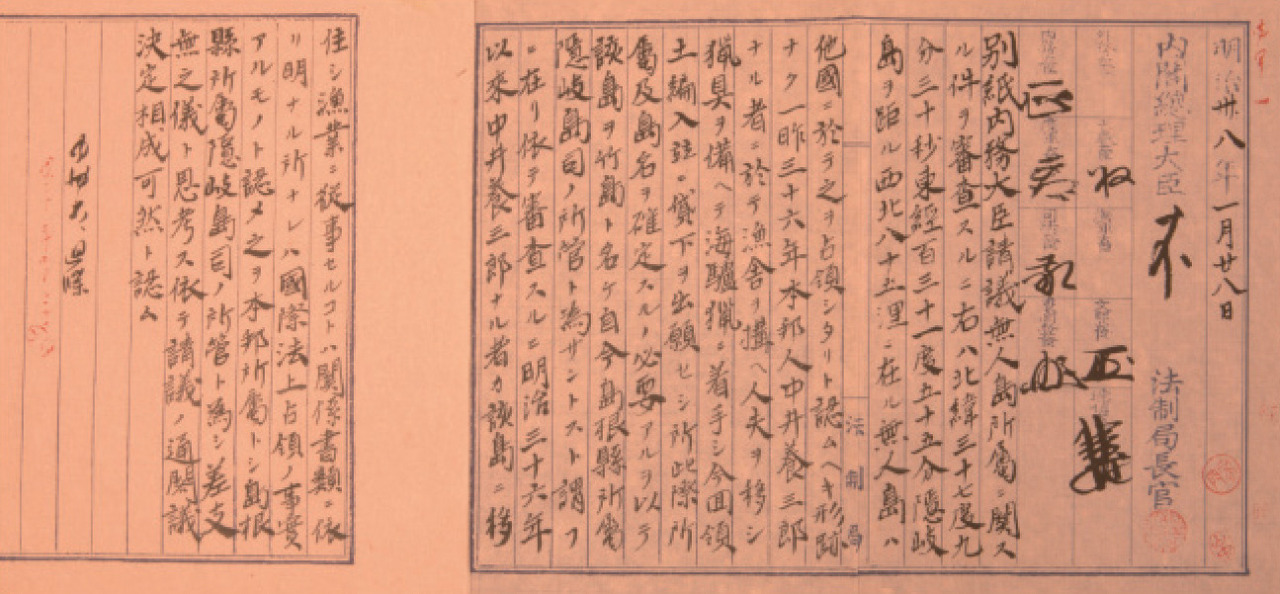 明治卅八年一月廿八日
内閣総理大臣
法制局長官
別紙内務大臣請議無人島所属ニ関ス
ル件ヲ審査スルニ右ハ北緯三十七度九
分三十秒東經百三十一度五十五分隠岐
島ヲ距ル西北八十五浬ニ在ル無人島ハ
他國ニ於テ之ヲ占領シタリト認ムヘキ形跡
ナク一昨三十六年本邦人中井養三郎
ナル者ニ於テ漁舎ヲ構ヘ人夫ヲ移シ
猟具ヲ備ヘテ海驢猟ニ着手シ今回領
土編入竝ニ貸下ヲ出願セシ所此際所
属及島名ヲ確定スルノ必要アルヲ以テ
該島ヲ竹島ト名ケ自今島根縣所属
隠岐島司ノ所管ト為サントスト謂フ
ニ在リ依テ審査スルニ明治三十六年
以来中井養三郎ナル者カ該島ニ移
住シ漁業ニ從事セルコトハ関係書類ニ依
リ明ナル所ナレハ國際法上占領ノ事實
アルモノト認メ之ヲ本邦所属トシ島根
縣所属隠岐島司ノ所管ト為シ差支
無之儀ト思考ス依テ請議ノ通閣議
決定相成可然ト認ム
法制局